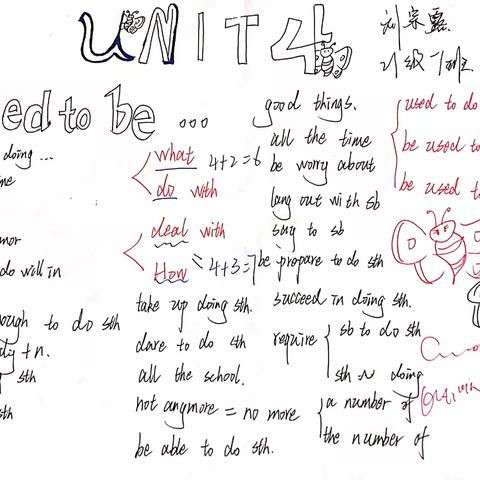 UNIT 4
刘宗磊
21级7班
ed to be ...
good things.
doing ...
what
do with
4+2=6
all the time
be worry about
lang out with sb
say to sb
be prepare to do sth
used to do
be used to
be used t
mor
do will in
deal with
How
=4+3=7
ough to do sth
+n.
sth
sth
take up doing sth.
dare to do sth
all the school.
not angmore = no more
be able to do sth.
succeed in doing sth.
repuire
sb to do sth
sth ~ doing
a number of
the number of